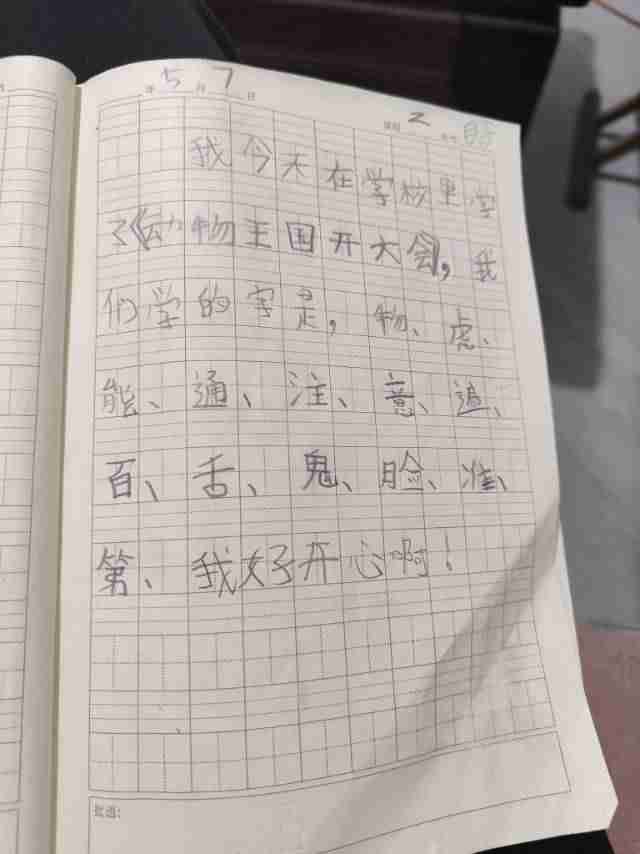 年 5 月 7 日
星期 2 天气 晴
我今天在学校里学
了《动物王国开大会》，我
们学的字是，物、虎、
能、通、注、意、遍、
百、舌、鬼、脸、准、
第、我好开心啊！
批阅：